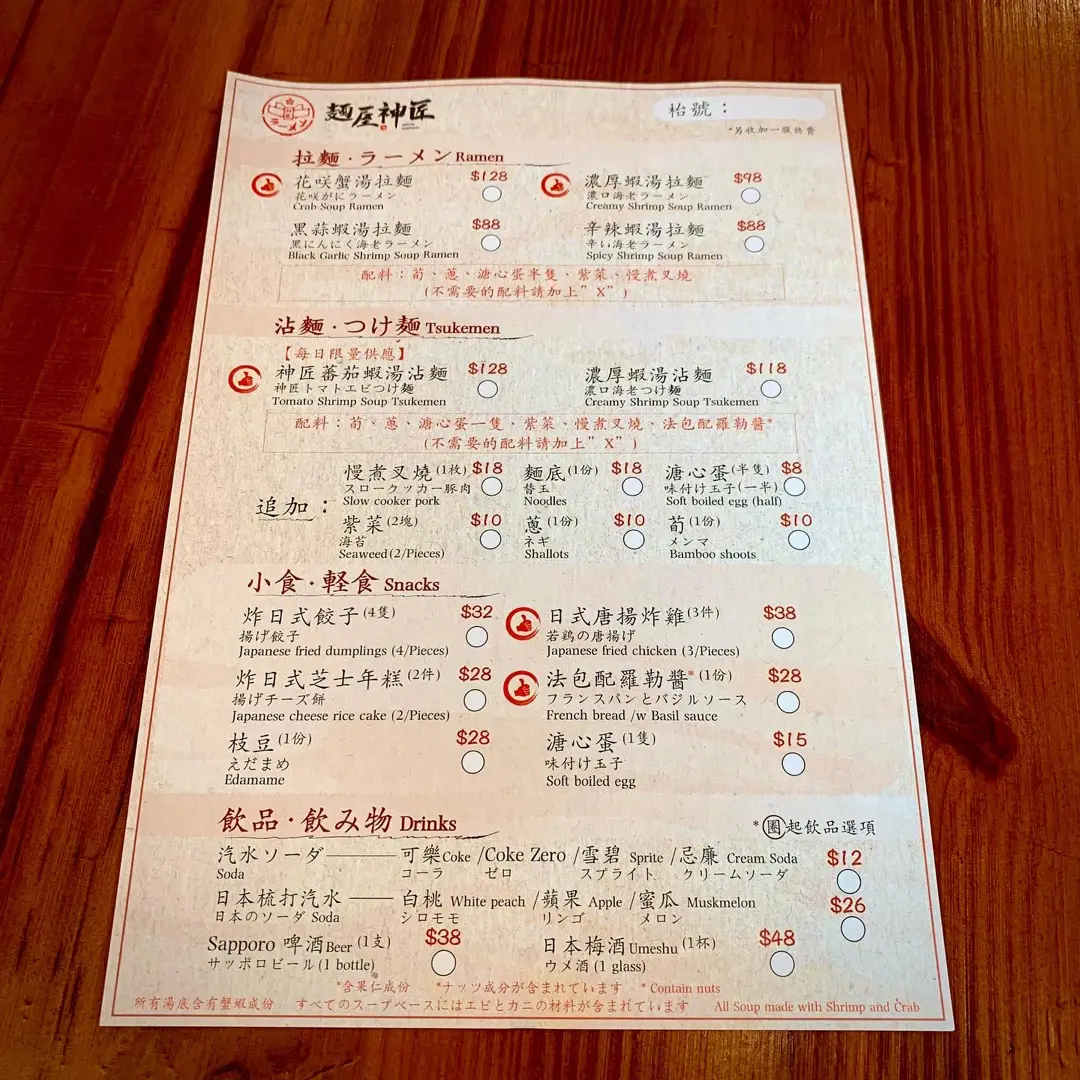 ラーメン
麵屋神匠
枱號：
*另收加一服務費
拉麵・ラーメン Ramen
花咲蟹湯拉麵 $128
花咲がにラーメン
Crab Soup Ramen
濃厚蝦湯拉麵 $98
濃口海老ラーメン
Creamy Shrimp Soup Ramen
黑蒜蝦湯拉麵 $88
黒にんにく海老ラーメン
Black Garlic Shrimp Soup Ramen
辛辣蝦湯拉麵 $88
辛い海老ラーメン
Spicy Shrimp Soup Ramen
配料：荀、蔥、溏心蛋半隻、紫菜、慢煮叉燒
(不需要的配料請加上”X”)
沾麵・つけ麵 Tsukemen
【每日限量供應】
神匠蕃茄蝦湯沾麵 $128
神匠トマトエビつけ麵
Tomato Shrimp Soup Tsukemen
濃厚蝦湯沾麵 $118
濃口海老つけ麵
Creamy Shrimp Soup Tsukemen
配料：荀、蔥、溏心蛋一隻、紫菜、慢煮叉燒、法包配羅勒醬*
(不需要的配料請加上”X”)
追加：
慢煮叉燒(1枚) $18
スロークッカー豚肉
Slow cooker pork
麵底(1份) $18
替玉
Noodles
溏心蛋(半隻) $8
味付け玉子(一半)
Soft boiled egg (half)
紫菜(2塊) $10
海苔
Seaweed(2/Pieces)
蔥(1份) $10
ネギ
Shallots
荀(1份) $10
メンマ
Bamboo shoots
小食・軽食 Snacks
炸日式餃子(4隻) $32
揚げ餃子
Japanese fried dumplings (4/Pieces)
日式唐揚炸雞(3件) $38
若鶏の唐揚げ
Japanese fried chicken (3/Pieces)
炸日式芝士年糕(2件) $28
揚げチーズ餅
Japanese cheese rice cake (2/Pieces)
法包配羅勒醬*(1份) $28
フランスパンとバジルソース
French bread /w Basil sauce
枝豆(1份) $28
えだまめ
Edamame
溏心蛋(1隻) $15
味付け玉子
Soft boiled egg
飲品・飲み物 Drinks
*圈起飲品選項
汽水ソーダ——可樂Coke /Coke Zero /雪碧 Sprite /忌廉 Cream Soda $12
Soda コーラ ゼロ スプライト クリームソーダ
日本梳打汽水——白桃 White peach /蘋果 Apple /蜜瓜 Muskmelon $26
日本のソーダ Soda シロモモ リンゴ メロン
Sapporo 啤酒Beer (1支) $38
サッポロビール(1 bottle)
日本梅酒Umeshu (1杯) $48
ウメ酒 (1 glass)
*含果仁成份 *ナッツ成分が含まれています * Contain nuts
所有湯底含有蟹蝦成份 すべてのスープベースにはエビとカニの材料が含まれています All Soup made with Shrimp and Crab